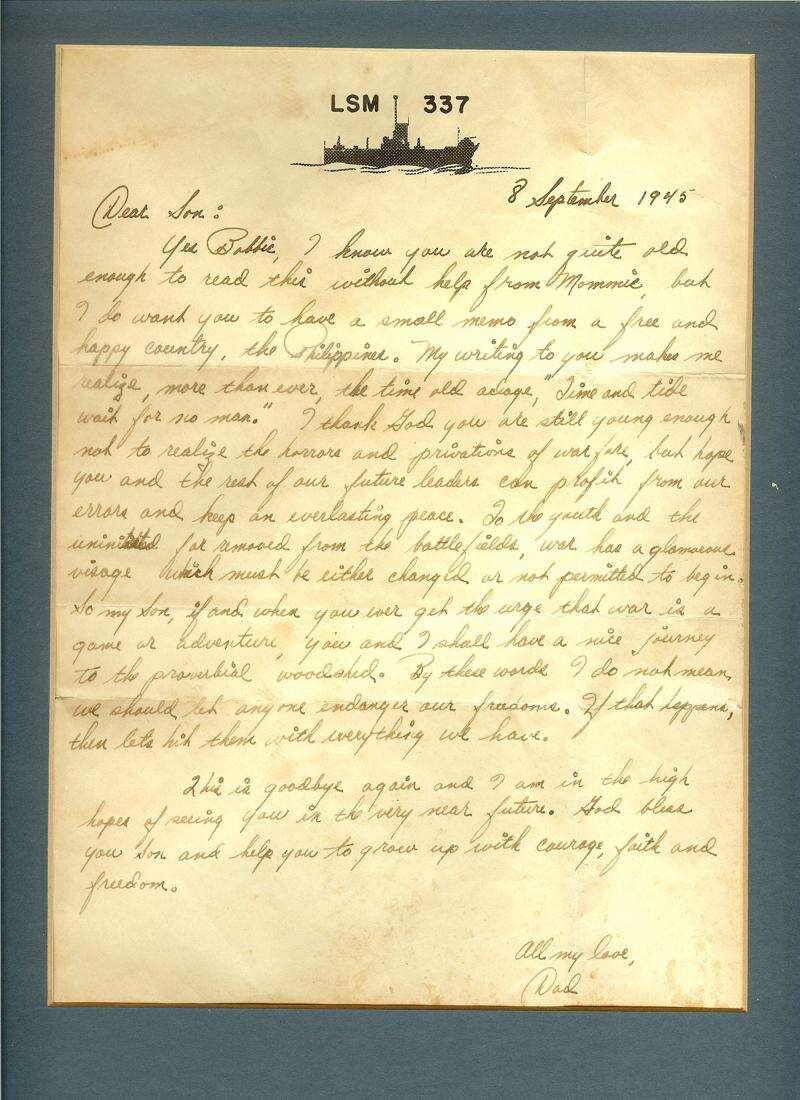 LSM 337
8 September 1945
Dear Son:
Yes Bobbie, I know you are not quite old
enough to read this without help from Mommie, but
I do want you to have a small memo from a free and
happy country, the Philippines. My writing to you makes me
realize, more than ever, the time old adage, "Time and tide
wait for no man." I thank God you are still young enough
not to realize the horrors and privations of warfare, but hope
you and the rest of our future leaders can profit from our
errors and keep an everlasting peace. To the youth and the
far removed from the battlefields, war has a glamorous
visage which must be either changed or not permitted to begin.
So my Son, if and when you ever get the urge that war is a
game or adventure, you and I shall have a nice journey
to the proverbial woodshed. By these words I do not mean
we should let anyone endanger our freedoms. If that happens,
then lets hit them with everything we have.
This is goodbye again and I am in the high
hopes of seeing you in the very near future. God bless
you Son and help you to grow up with courage, faith and
freedom.
All my love,
Dad